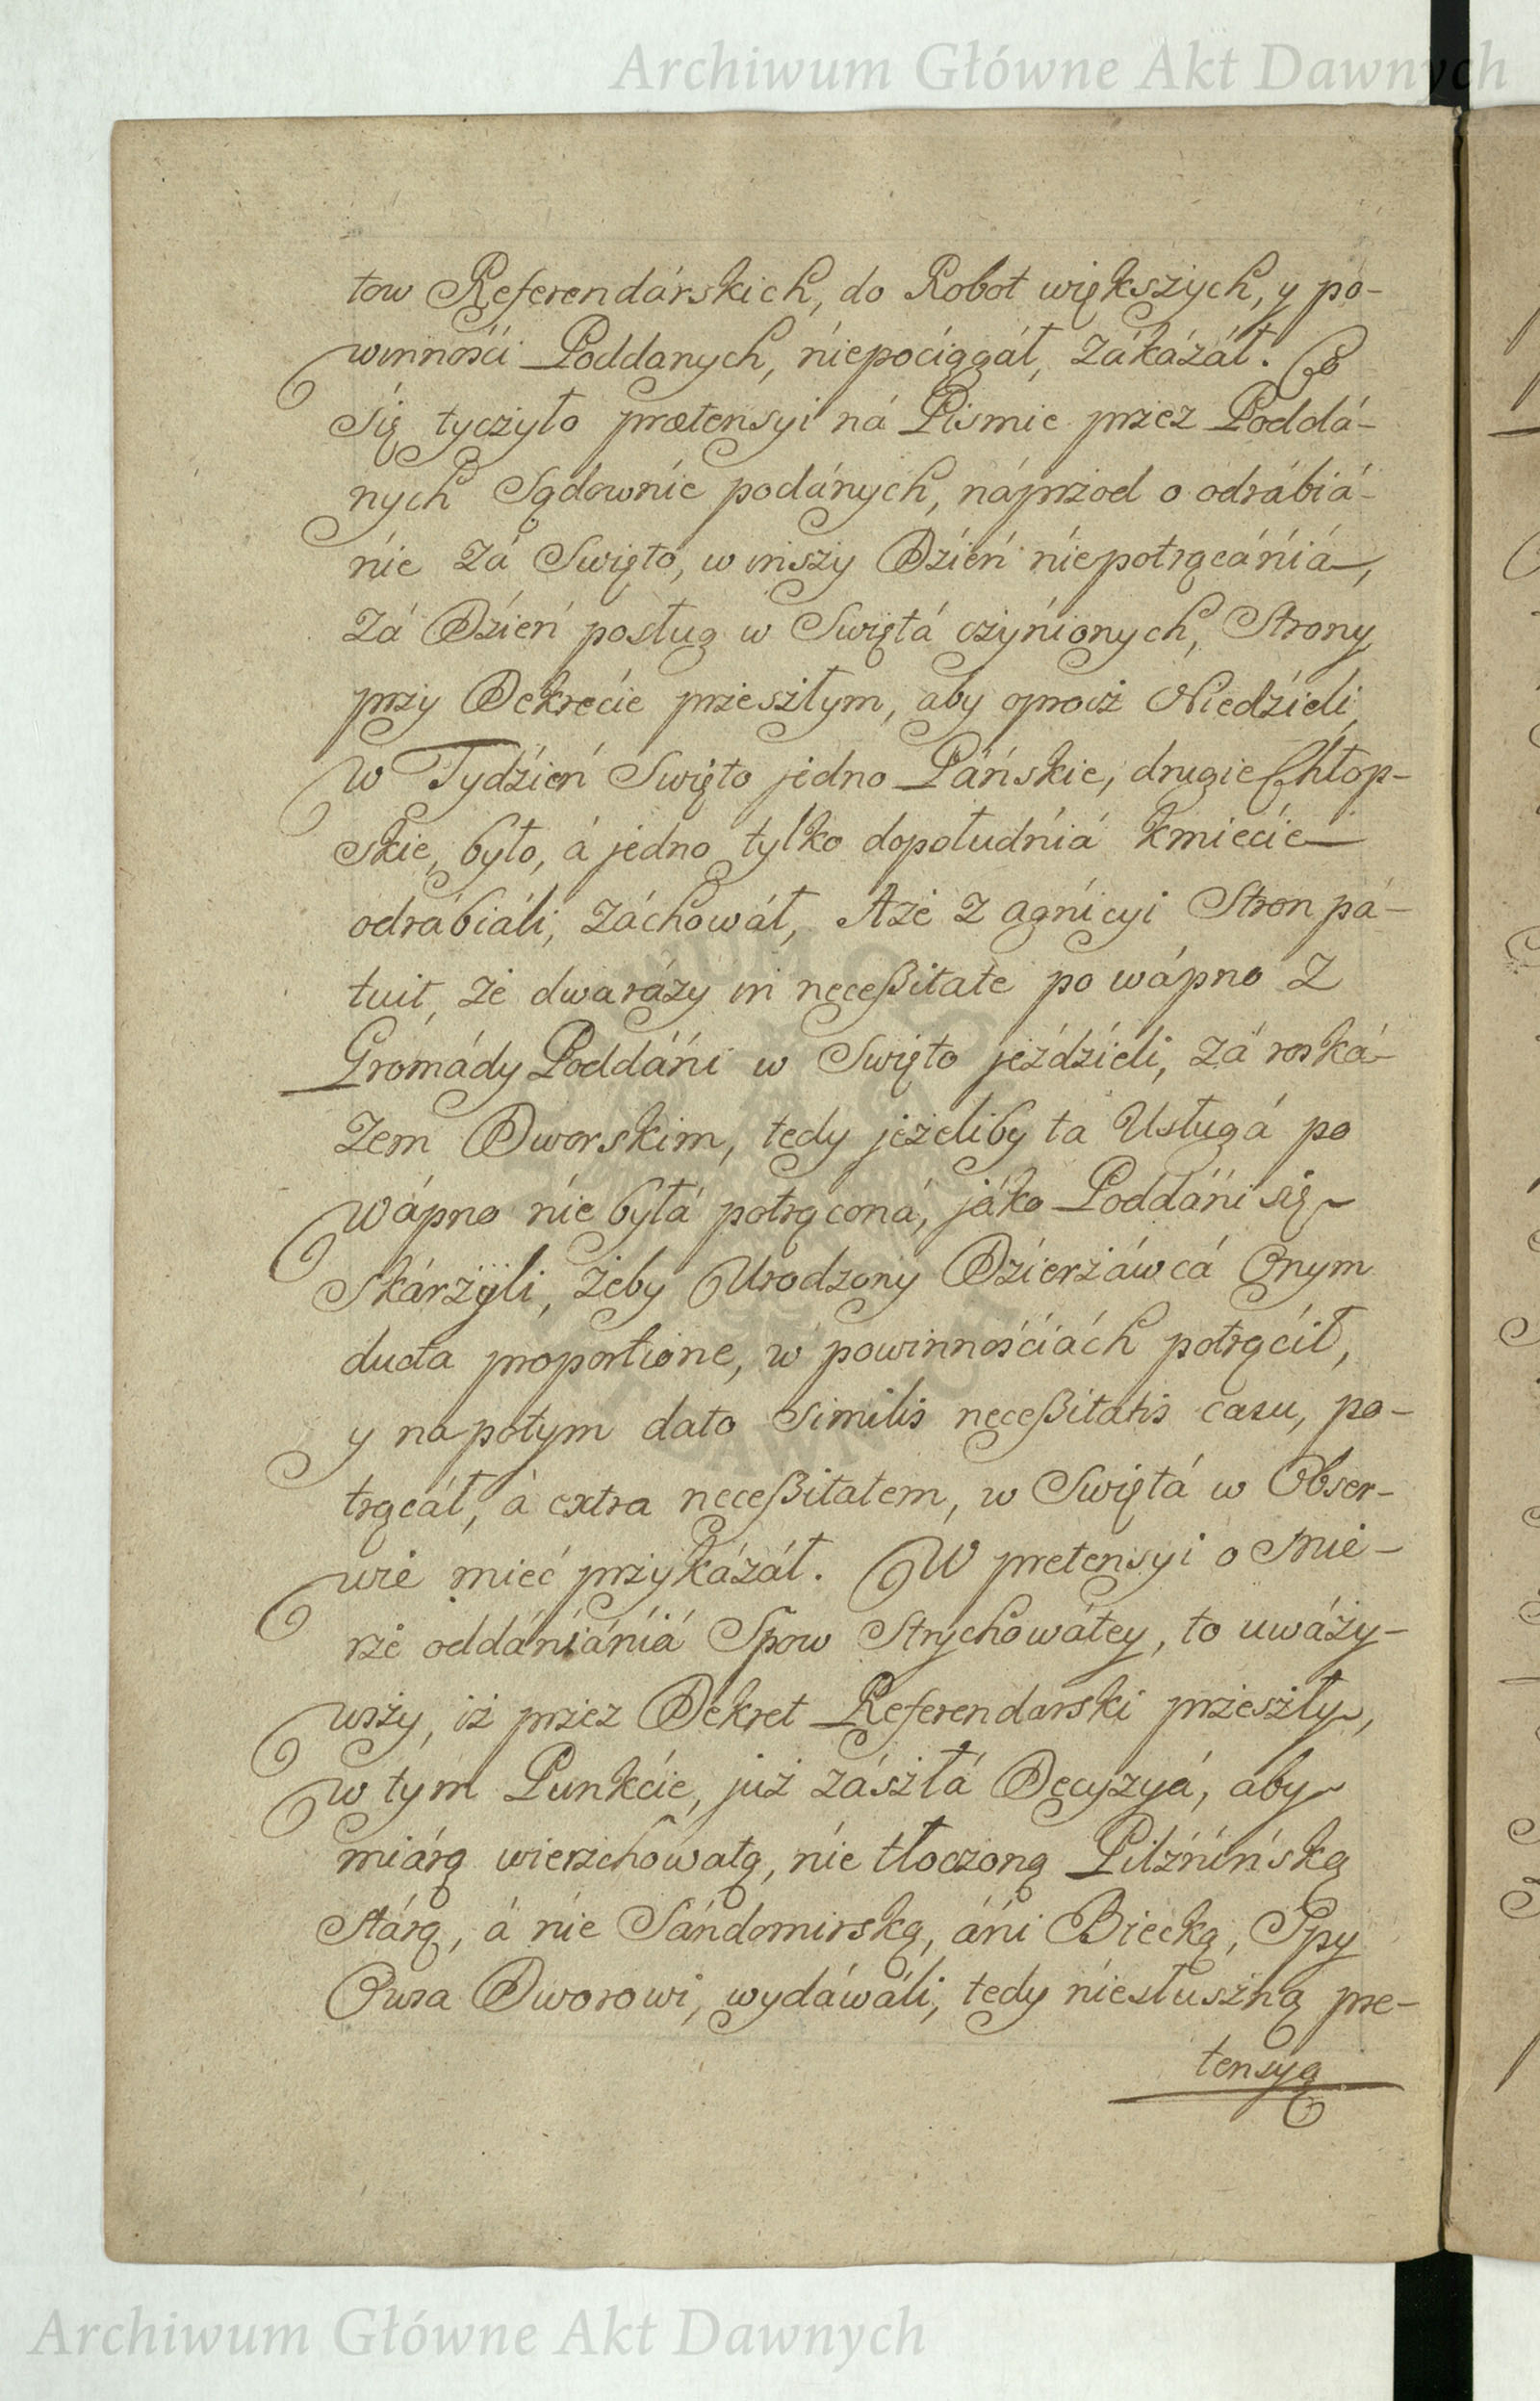 Archiwum Główne Akt Dawnych
tow Referendárskich, do Robot większych, y po-
winnośći Poddanych, niepociągáł, zákázáł. Co
się tyczyło prætensyi ná Pismie przez Poddá-
nych Sądownie podánych, náprzod o odrábiá-
nie zá Swięto, w inszy Dźień niepotrącániá,
zá Dźień posług w Swiętá czynionych, Strony
przy Dekrecie przeszłym, aby oprocz Niedźieli,
w Tydźień Swięto jedno Páńskie, drugie Chłop-
skie, było, á jedno tylko dopołudniá kmiecie
odrábiáli, záchowáł, A że z agnicyi Stron pá-
tuit, że dwa rázy in necessitate po wápno z
Gromády Poddáni w Swięto jeźdźieli, zá roská-
zem Dworskim, tedy jeżeliby ta Usługá po
wápno nie byłá potrąconá, jáko Poddáni się
skárżyli, żeby Urodzony Dźierżáwcá Onym
ducta proportione, w powinnośćiách potrąćił,
y na potym dato similis necessitatis casu, po-
trącáł, á extra necessitatem, w Swiętá w Obser-
wie mieć przykázáł. W pretensyi o Mie-
rze oddániániá Spow Strychowátey, to uwáży-
wszy, iż przez Dekret Referendarski przeszły,
w tym Punkćie, już zászłá Decyzyá, aby
miárą wierzchowatą, nie tłoczoną Pilźnińską
stárą, á nie Sándomirską, áni Biecką, Spy
Owsa Dworowi, wydáwáli, tedy niesłuszną pre-
tensyą
Archiwum Główne Akt Dawnych